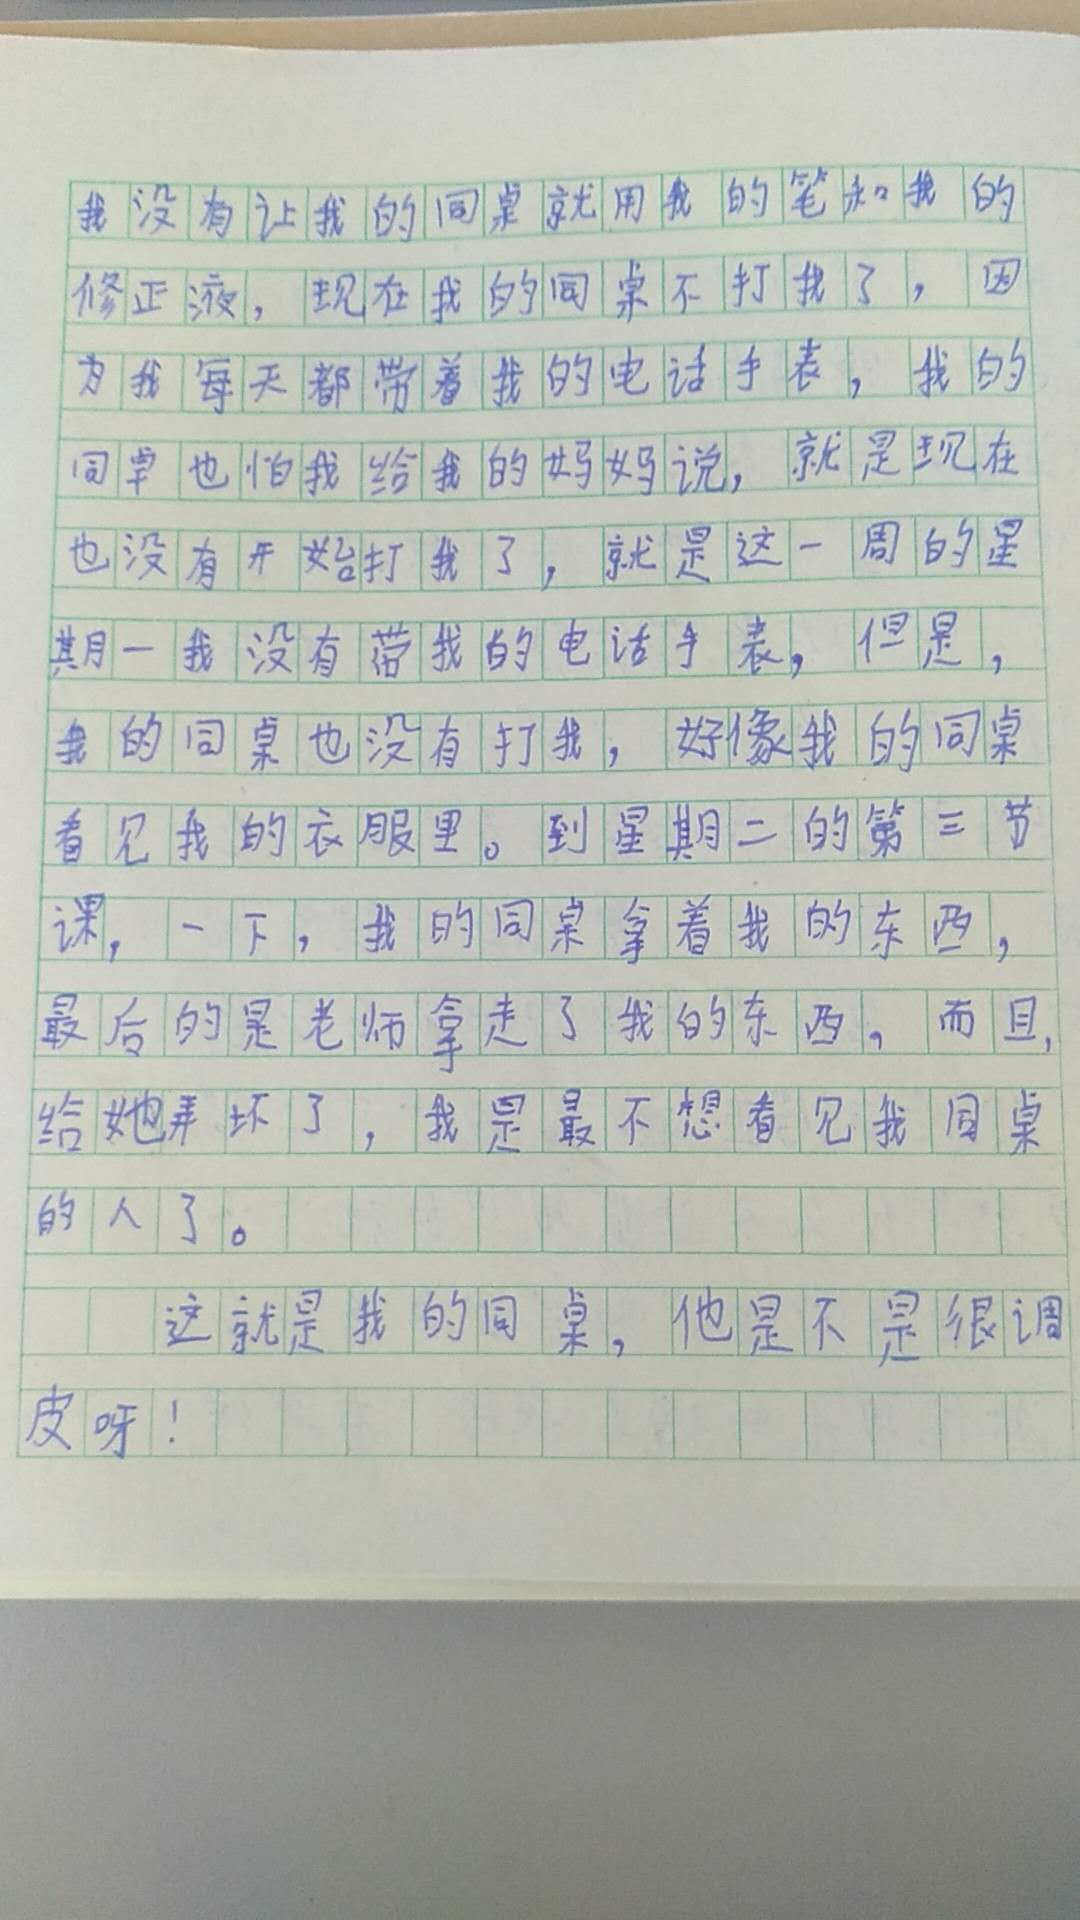 我没有让我的同桌就用我的笔和我的
修正液，现在我的同桌不打我了，因
为我每天都带着我的电话手表，我的
同桌也怕我给我的妈妈说，就是现在
也没有开始打我了，就是这一周的星
期一我没有带我的电话手表，但是，
我的同桌也没有打我，好像我的同桌
看见我的衣服里。到星期二的第三节
课，一下，我的同桌拿着我的东西，
最后的是老师拿走了我的东西，而且，
给她弄坏了，我是最不想看见我同桌
的人了。
这就是我的同桌，他是不是很调
皮呀！